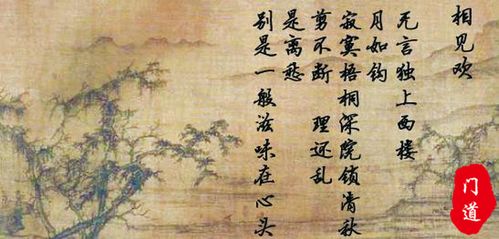 相见欢
无言独上西楼
月如钩
寂寞梧桐深院锁清秋
剪不断 理还乱
是离愁
别是一般滋味在心头
门道